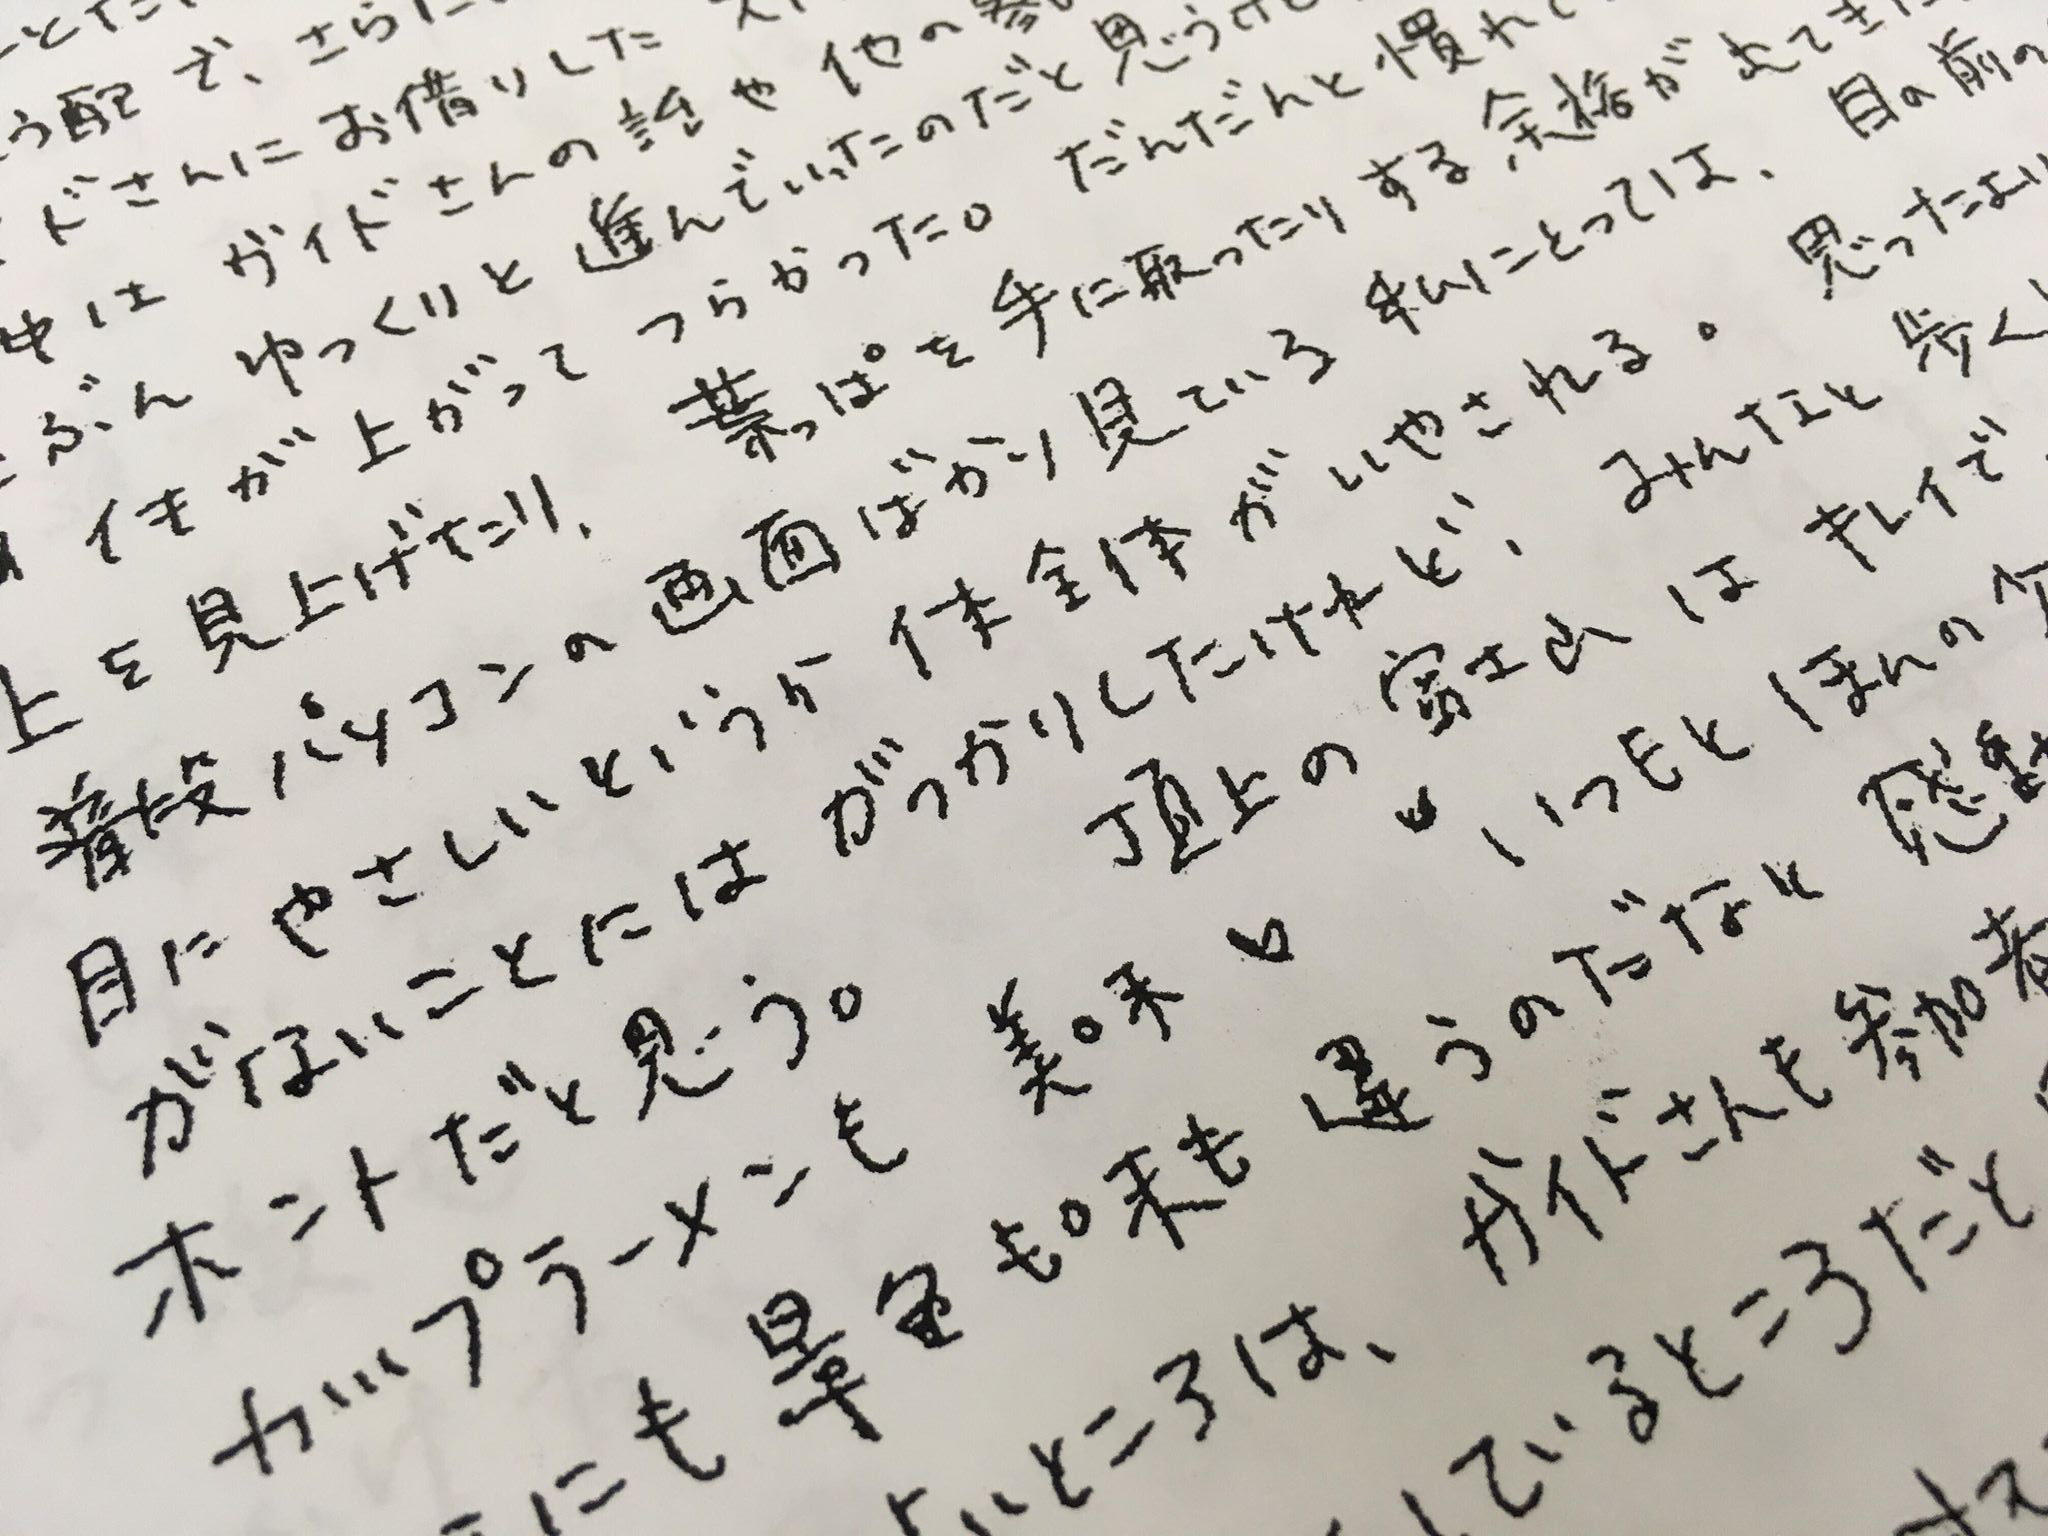 う配で、さらに
ドさんにお借りした ス
中は ガイドさんの話や 他の参
ぶん ゆっくりと 進んでいったのだと思うけど
イキが 上がって つらかった。 だんだんと 慣れて
上を見上げたり、 葉っぱを手に取ったりする余裕が 出てきた
普段パソコンの画面ばかり見ている 私にとっては、 目の前の
目にやさしいというか 体全体が いやされる。 思ったより
がないことには がっかりしたけれど、 みんなと 歩く
ホントだと思う。 頂上の富士山は キレイで
カップラーメンも 美味 いつもとほんの
にも景色も味も 違うのだなと 感
いところは、 ガイドさんも参加者
しているところだと